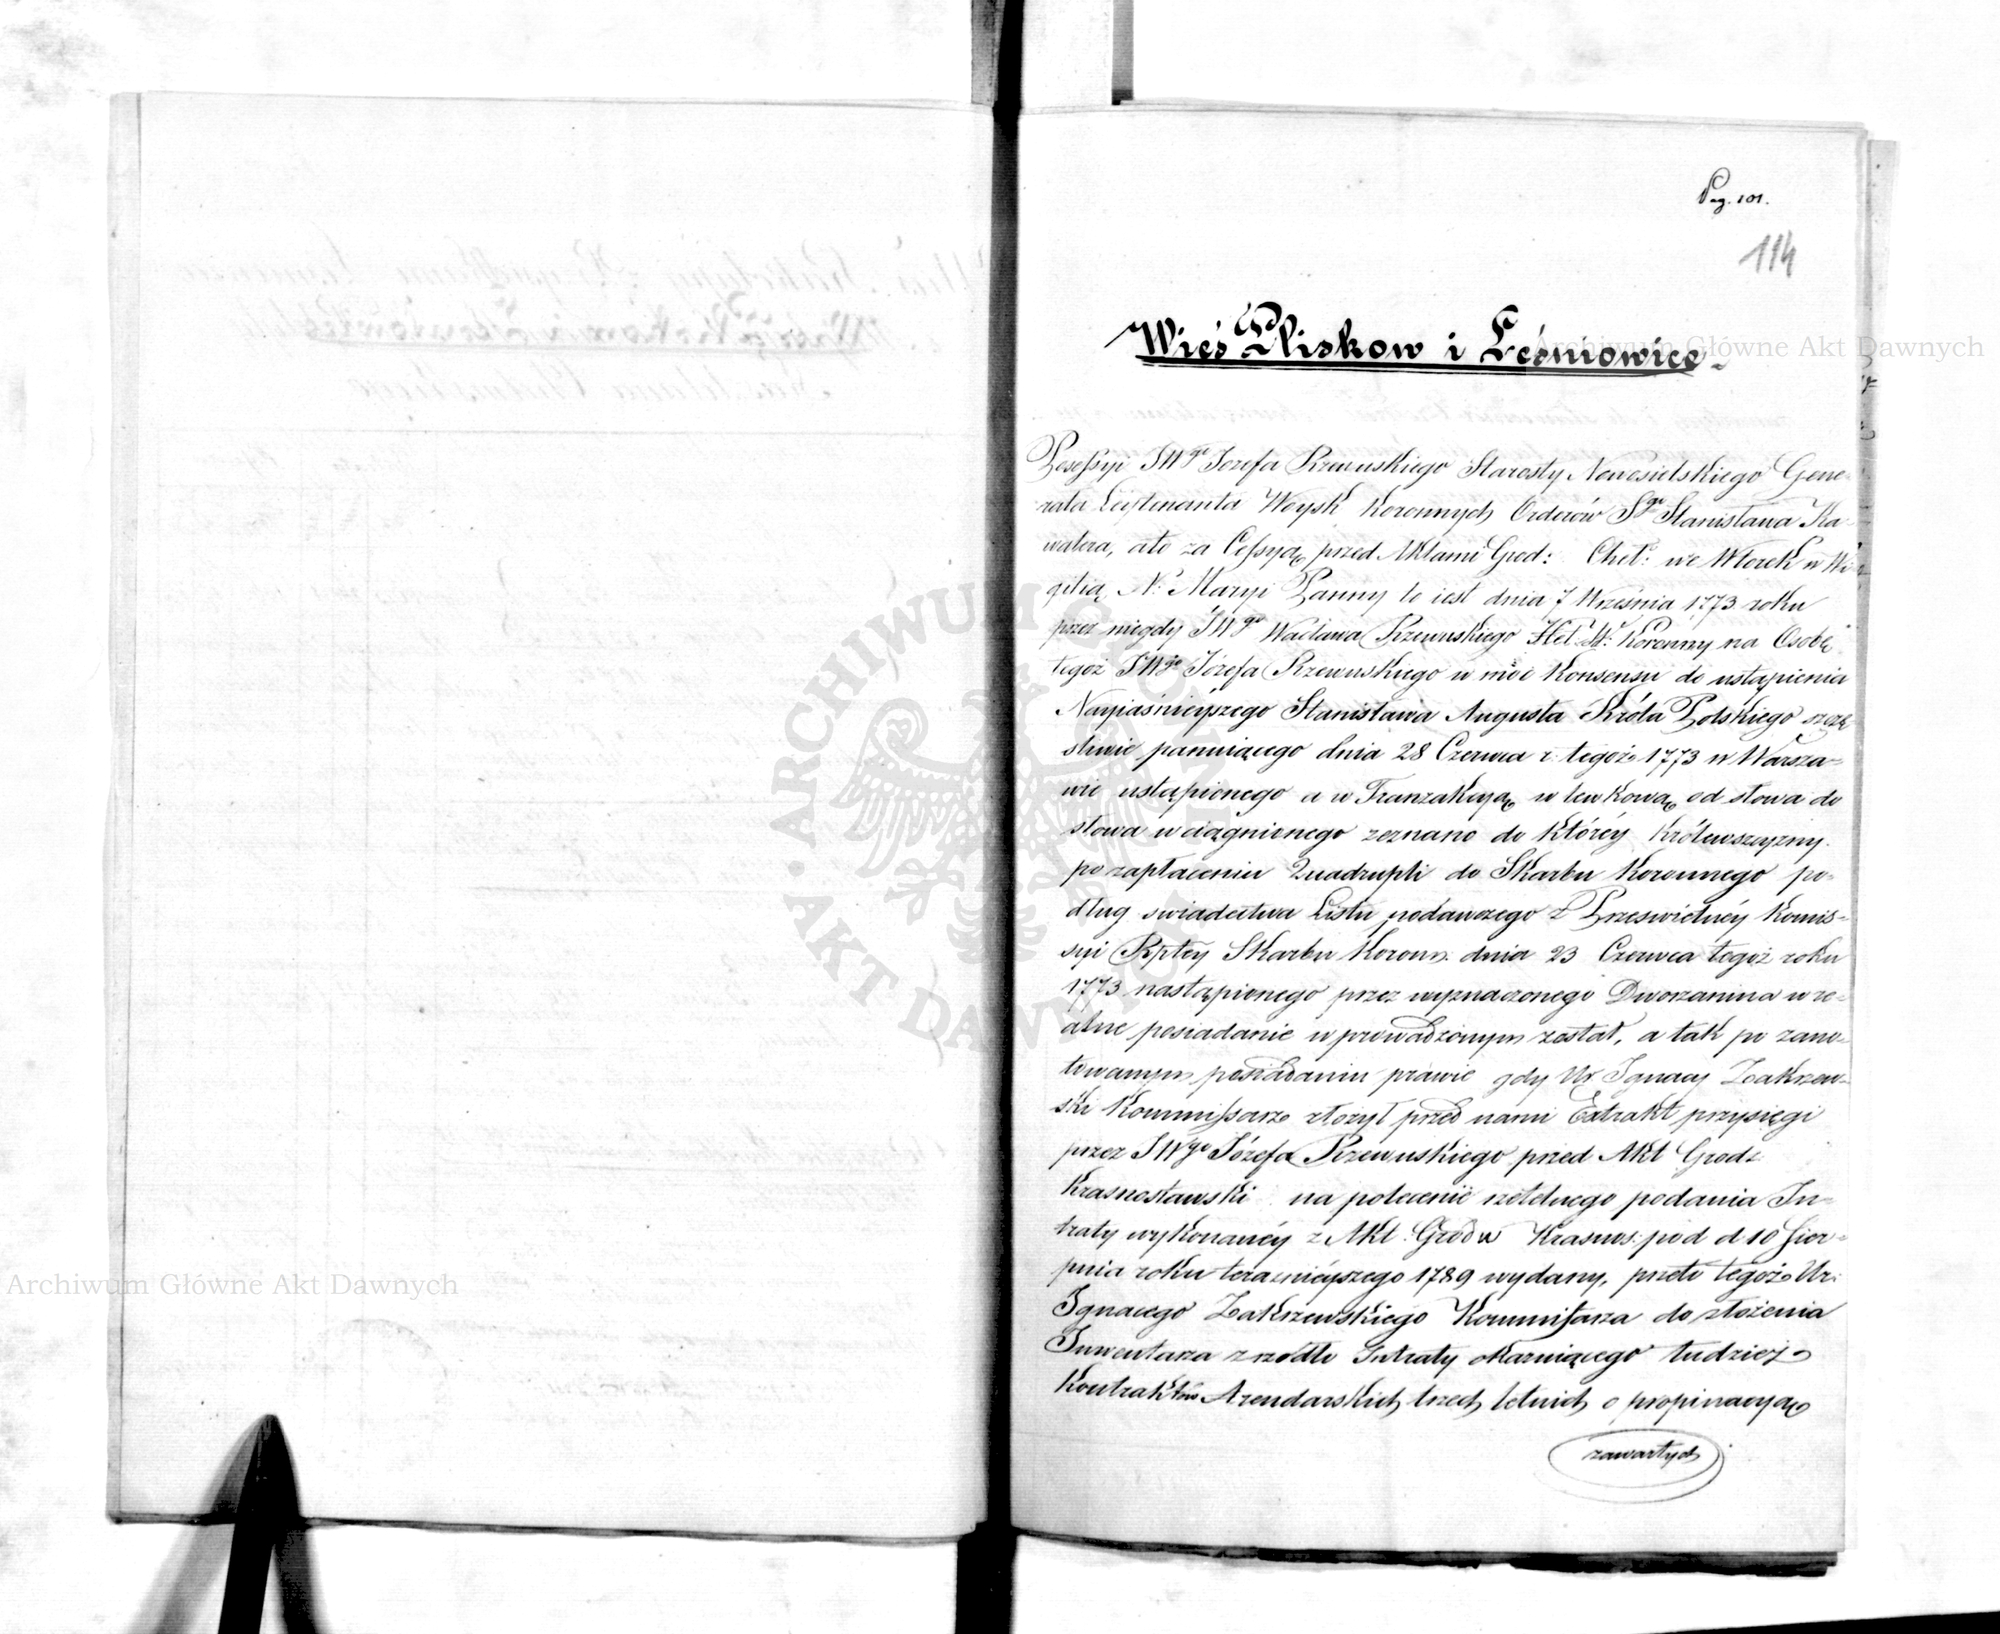 Pag. 101.
114
Wieś Pliskow i Leśniowice
Possessyi JWgo Jozefa Rzewuskiego Starosty Nowosielskiego Gene-
rała Leytenanta Woysk Koronnych Orderów Sgo Stanisława Ka-
walera, ato za Cessyą przed Aktami Grod: Cheł: we Wtorek w Wi-
gilią N. Maryi Panny to iest dnia 7 Września 1773 roku
przez niegdy JWgo Wacława Rzewuskiego Het. W. Koronny na Osobę
tegoż JWgo Józefa Rzewuskiego w moc Konsensu do ustąpienia
Nayiaśnieyszego Stanisława Augusta Króla Polskiego szczę-
sliwie panuiącego dnia 28 Czerwca r. tegoż 1773 w Warsza-
wie ustąpionego a w Tranzakcyą w tenkową od słowa do
słowa wciągnionego zeznano do którey Królewszczyzny
po zapłaceniu Quadrupli do Skarbu Koronnego po-
dług swiadectwa Listu podawczego z Przeswietnéy Komis-
syi Rptey Skarbu Koronn. dnia 23 Czerwca tegoż roku
1773 nastąpionego przez wyznaczonego Dworzanina w re-
alne posiadanie wprowadzonym został, a tak po zano-
towanym posiadaniu prawie gdy Ur Ignacy Zakrzew-
ski Kommissarz złożył przed nami Extrakt przysięgi
przez JWgo Józefa Rzewuskiego przed Akt Grodz
Krasnostawski na polecenie rzetelnego podania In-
traty wykonanéy z Akt Grodu Krasnos: pod d 10 Sier-
pnia roku teraznieyszego 1789 wydany, przeto tegoż Ur:
Ignacego Zakrzewskiego Kommissarza do złożenia
Inwentarza zrzodło Intraty okazuiącego tudzież
Kontraktów Arendarskich trzech letnich o propinacyą
zawartych
Archiwum Główne Akt Dawnych
Archiwum Główne Akt Dawnych
ARCHIWUM GŁÓWNE AKT DAWNYCH